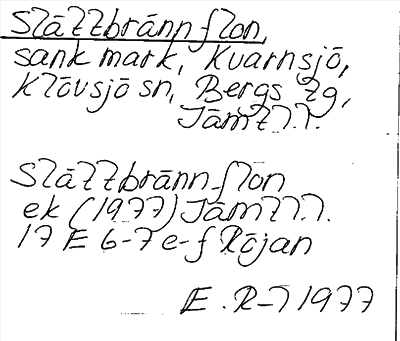 Slåttbrännflon,
sank mark, Kvarnsjö,
Klövsjö sn, Bergs tg,
Jämtl.
Slåttbrännflon
ek (1977) Jämtl.
17 E 6-7 e-f Röjan
E. R-7 1977